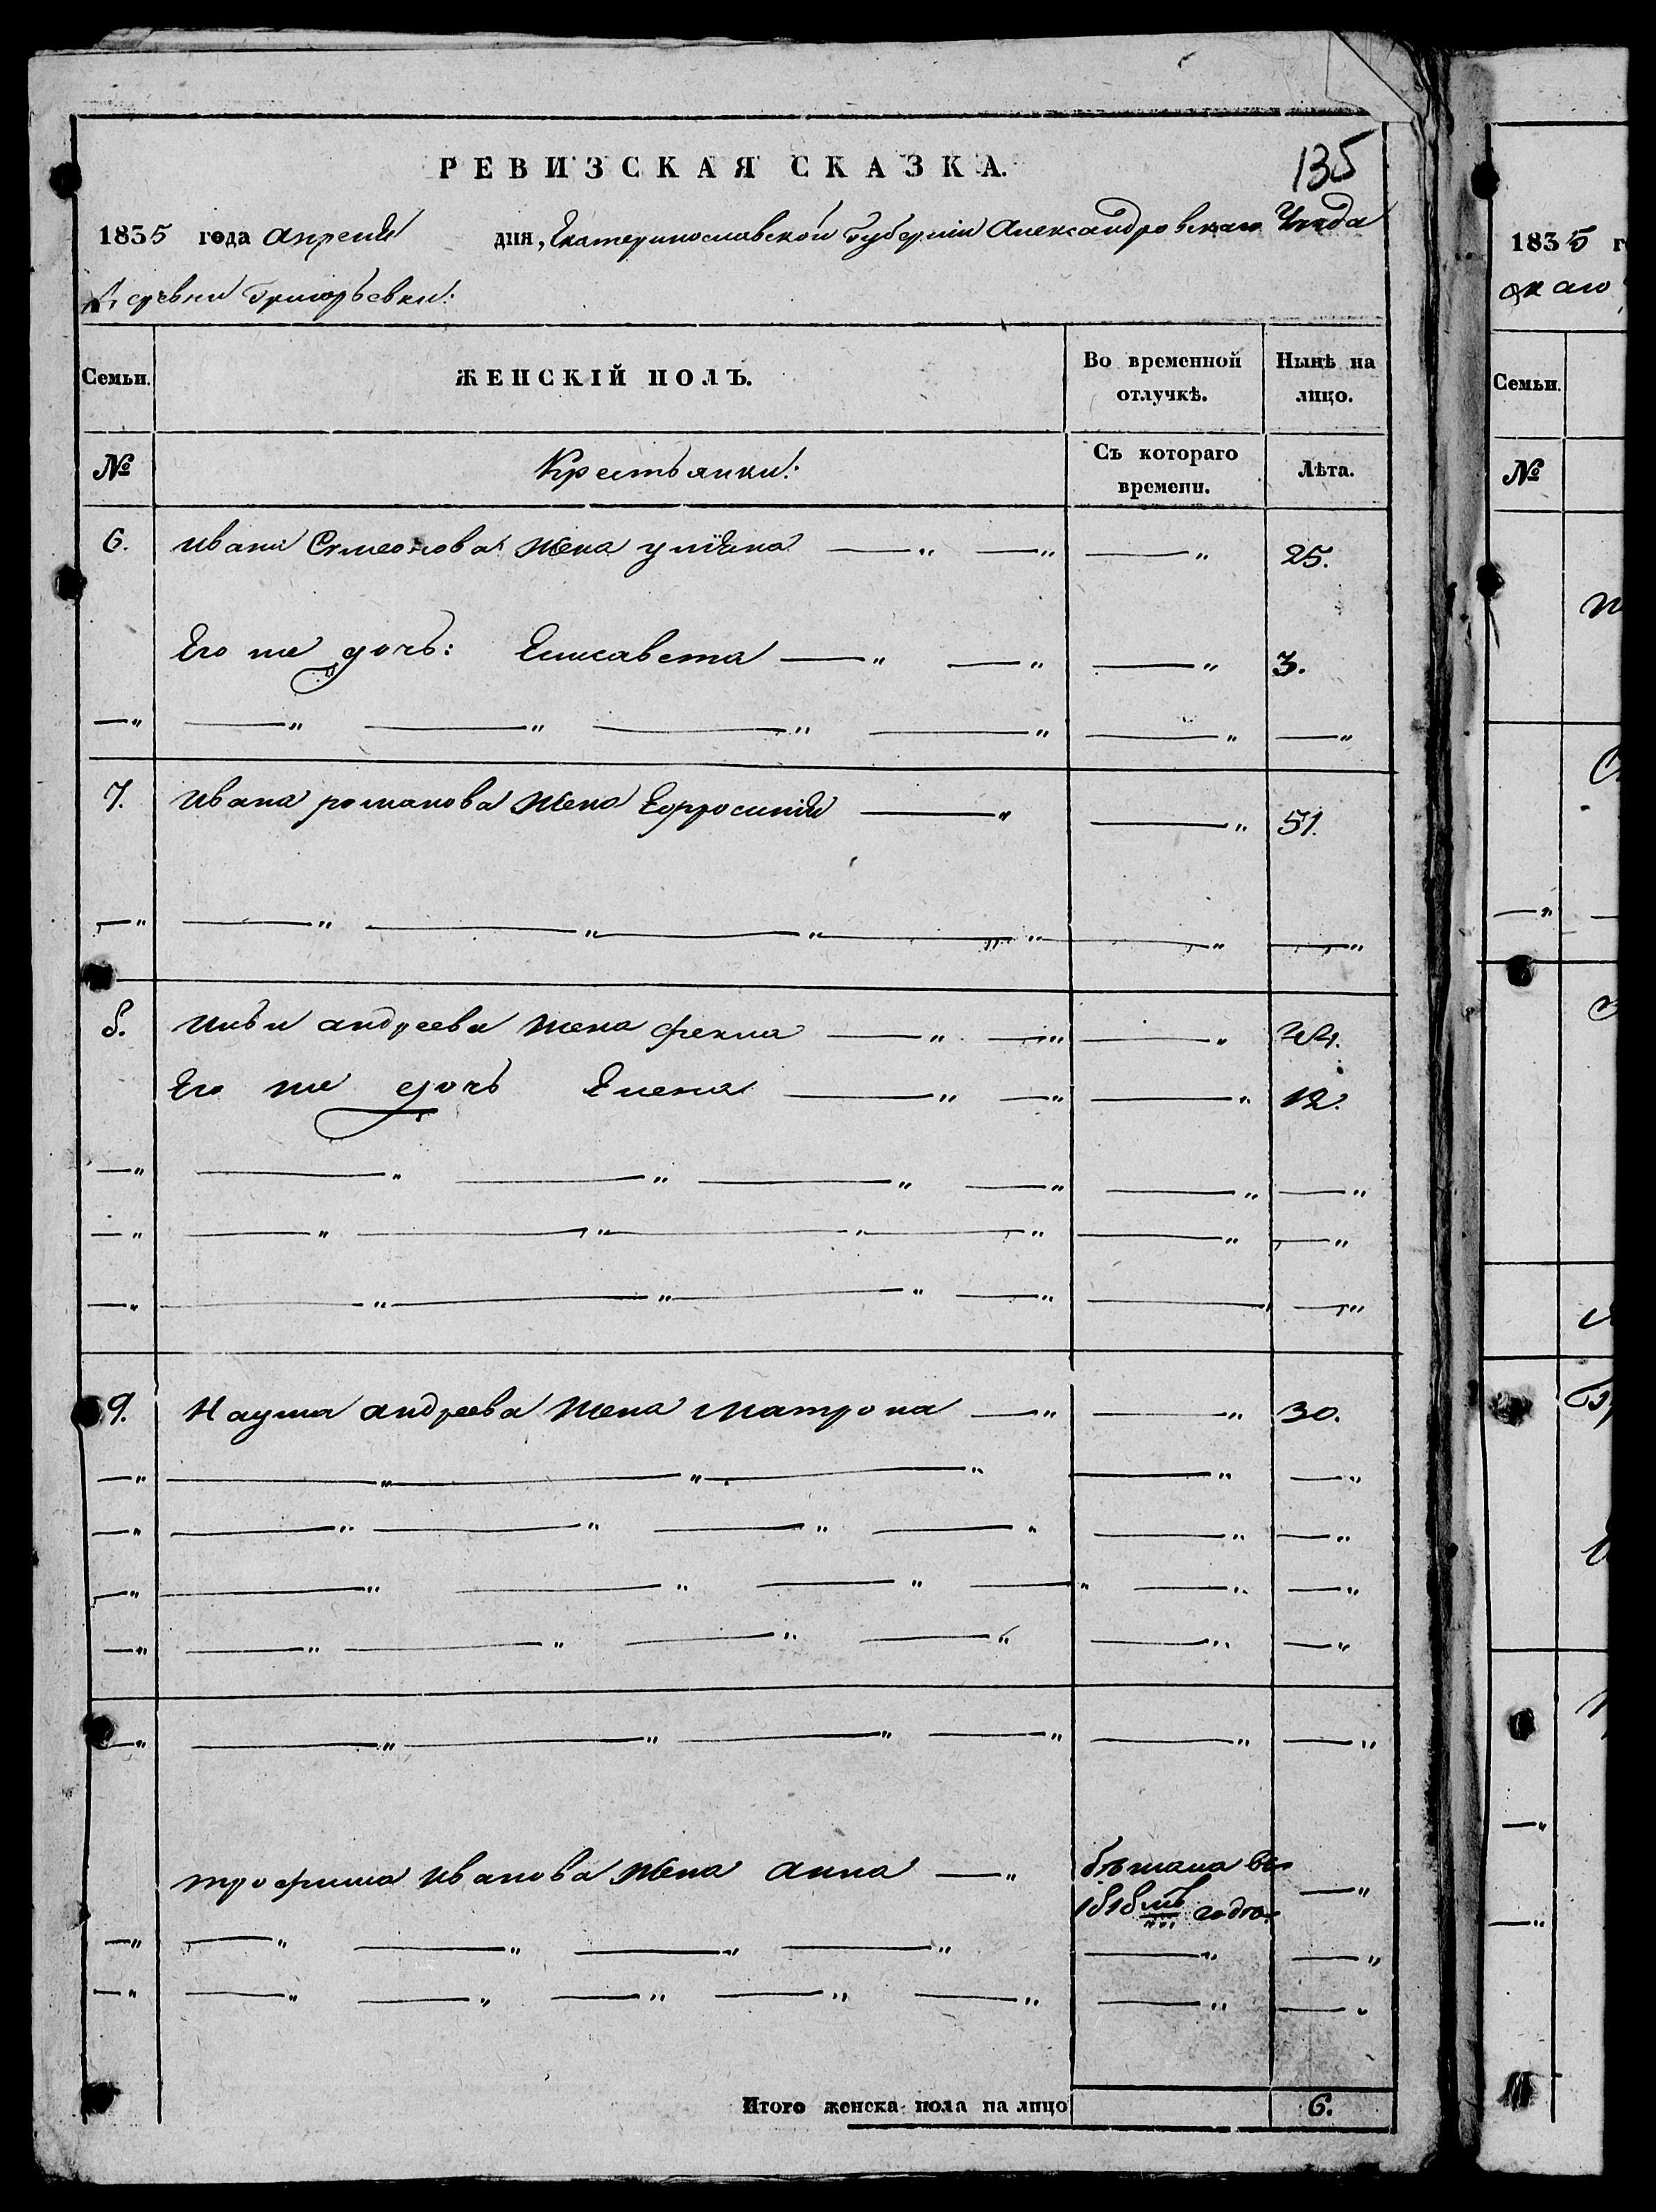 РЕВИЗСКАЯ СКАЗКА.
135
1835 года апреля дня, Екатеринославской Губернiи Александровскаго Уезда
Деревни Григорьевки:
Семьи. ЖЕНСКIЙ ПОЛЪ. Во временной отлучкѣ. Нынѣ на лицо.
№ Крестьянки: Съ котораго времени. Лѣта.
6. Ивана Симеонова жена улiяна —„ —„ —„ 25.
Его же дочь: Елисавета —„ —„ —„ 3.
—„ —„ —„ —„ —„ —„ —„
7. Ивана романова жена Ефросинiя —„ —„ 51.
—„ —„ —„ —„ —„ —„ —„
8. андреева жена фекла —„ —„ —„
Его же дочь Елена —„ —„ —„ 12.
—„ —„ —„ —„ —„ —„ —„
—„ —„ —„ —„ —„ —„ —„
—„ —„ —„ —„ —„ — —„
9. Наума андреева жена матрона —„ —„ 30.
—„ —„ —„ —„ —„ —„
—„ —„ —„ —„ —„ —„ —„
—„ —„ —„ —„ —„ —„ —„
—„ —„ —„ —„ —„ —„ —„
—„ —„ —„ —„ —„ —„ —„
трофима Иванова жена анна —„ бѣжала въ —„
1818мъ годѣ.
—„ —„ —„ —„ —„ —„ —„
—„ —„ —„ —„ —„ —„ —„ —„
Итого женска пола на лицо 6.
1835 г
Семьи.
№